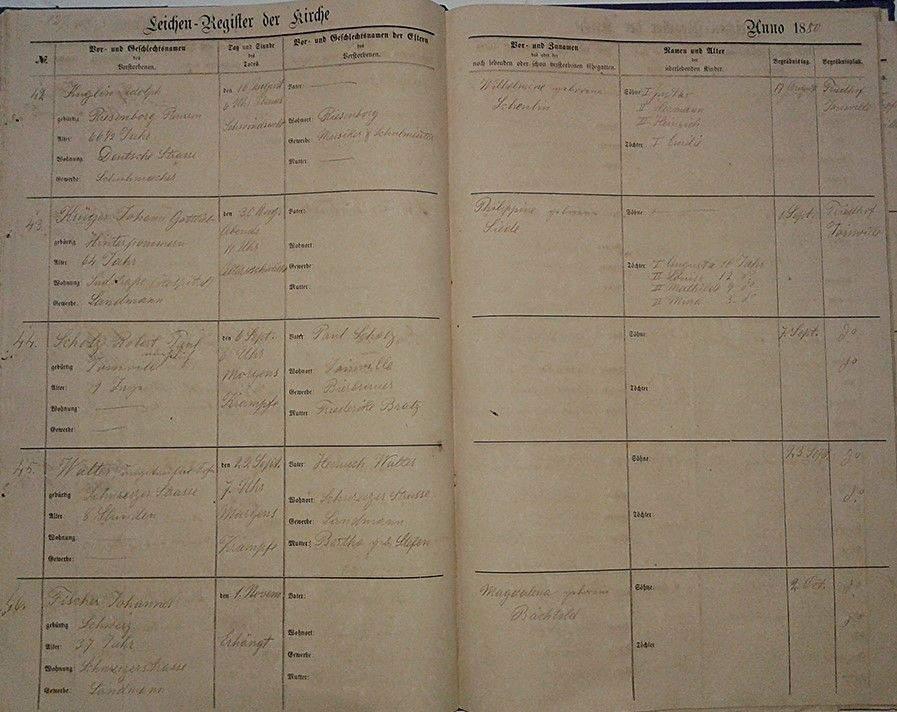 Leichen-Register der Kirche
Anno 1880
№
Vor- und Geschlechtsnamen
des
Verstorbenen.
Tag und Stunde
des
Todes
Vor- und Geschlechtsnamen der Eltern
des
Verstorbenen.
Vor- und Zunamen
des oder der
noch lebenden oder schon verstorbenen Ehegatten.
Namen und Alter
der
überlebenden Kinder.
Begräbnistag.
Begräbnisplatz.
42.
Adolph
gebürtig Riesenburg
Alter: Jahr
Wohnung: Deutsche Strasse
Gewerbe: Schuhmacher
den 16 August
6 Uhr
Schwindsucht
Vater:
Wohnort: Riesenburg
Gewerbe: Musiker & Schulmeister
Mutter:
Wilhelmine geborene
Söhne: I Gustav
II Hermann
III Heinrich
Töchter: I
17 August
Friedhof
Joinville
43.
Krüger Johann Gottlieb
gebürtig Hinterpommern
Alter: 64 Jahr
Wohnung:
Gewerbe: Landmann
den 30 Aug.
Abends
11 Uhr
Altersschwäche
Vater:
Wohnort:
Gewerbe:
Mutter:
Philippine geborene
Siede
Söhne:
Töchter: I Augusta 16 Jahr
II Louise 12 do
III Mathilde 9 do
Mina 3 do
1 Sept.
Friedhof
Joinville
44.
Scholz Robert Paul
gebürtig Joinville
Alter: 9 Tage
Wohnung:
Gewerbe:
den 6 Sept.
Uhr
Morgens
Krämpfe
Vater: Paul Scholz
Wohnort: Joinville
Gewerbe: Bierbrauer
Mutter: Friederike Bratz
Söhne:
Töchter:
7 Sept.
do
do
45.
Walter
gebürtig Schweizer Strasse
Alter: 8 Stunden
Wohnung:
Gewerbe:
den 22 Sept.
7 Uhr
Morgens
Krämpfe
Vater: Heinrich Walter
Wohnort: Schweizer Strasse
Gewerbe: Landmann
Mutter: Bertha geb. Stefen
Söhne:
Töchter:
23 Sept
do
do
46.
Fischer Johannes
gebürtig Schweiz
Alter: 37 Jahr
Wohnung: Schweizerstrasse
Gewerbe: Landmann
den 1. Novem
Erhängt
Vater:
Wohnort:
Gewerbe:
Mutter:
Magdalena geborene
Bächtold
Söhne:
Töchter:
2 Oct.
do
do